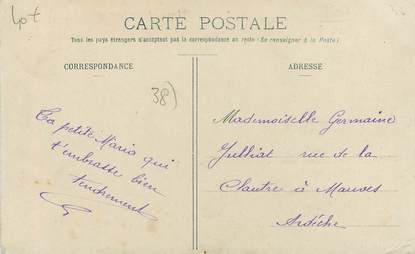 Lot
CARTE POSTALE
Tous les pays étrangers n'acceptent pas la correspondance au recto (Se renseigner à la Poste)
CORRESPONDANCE
ADRESSE
38)
Ta petite Maria qui
t'embrasse bien
tendrement
Mademoiselle Germaine
Julliat rue de la
Chautre à Mauves
Ardèche